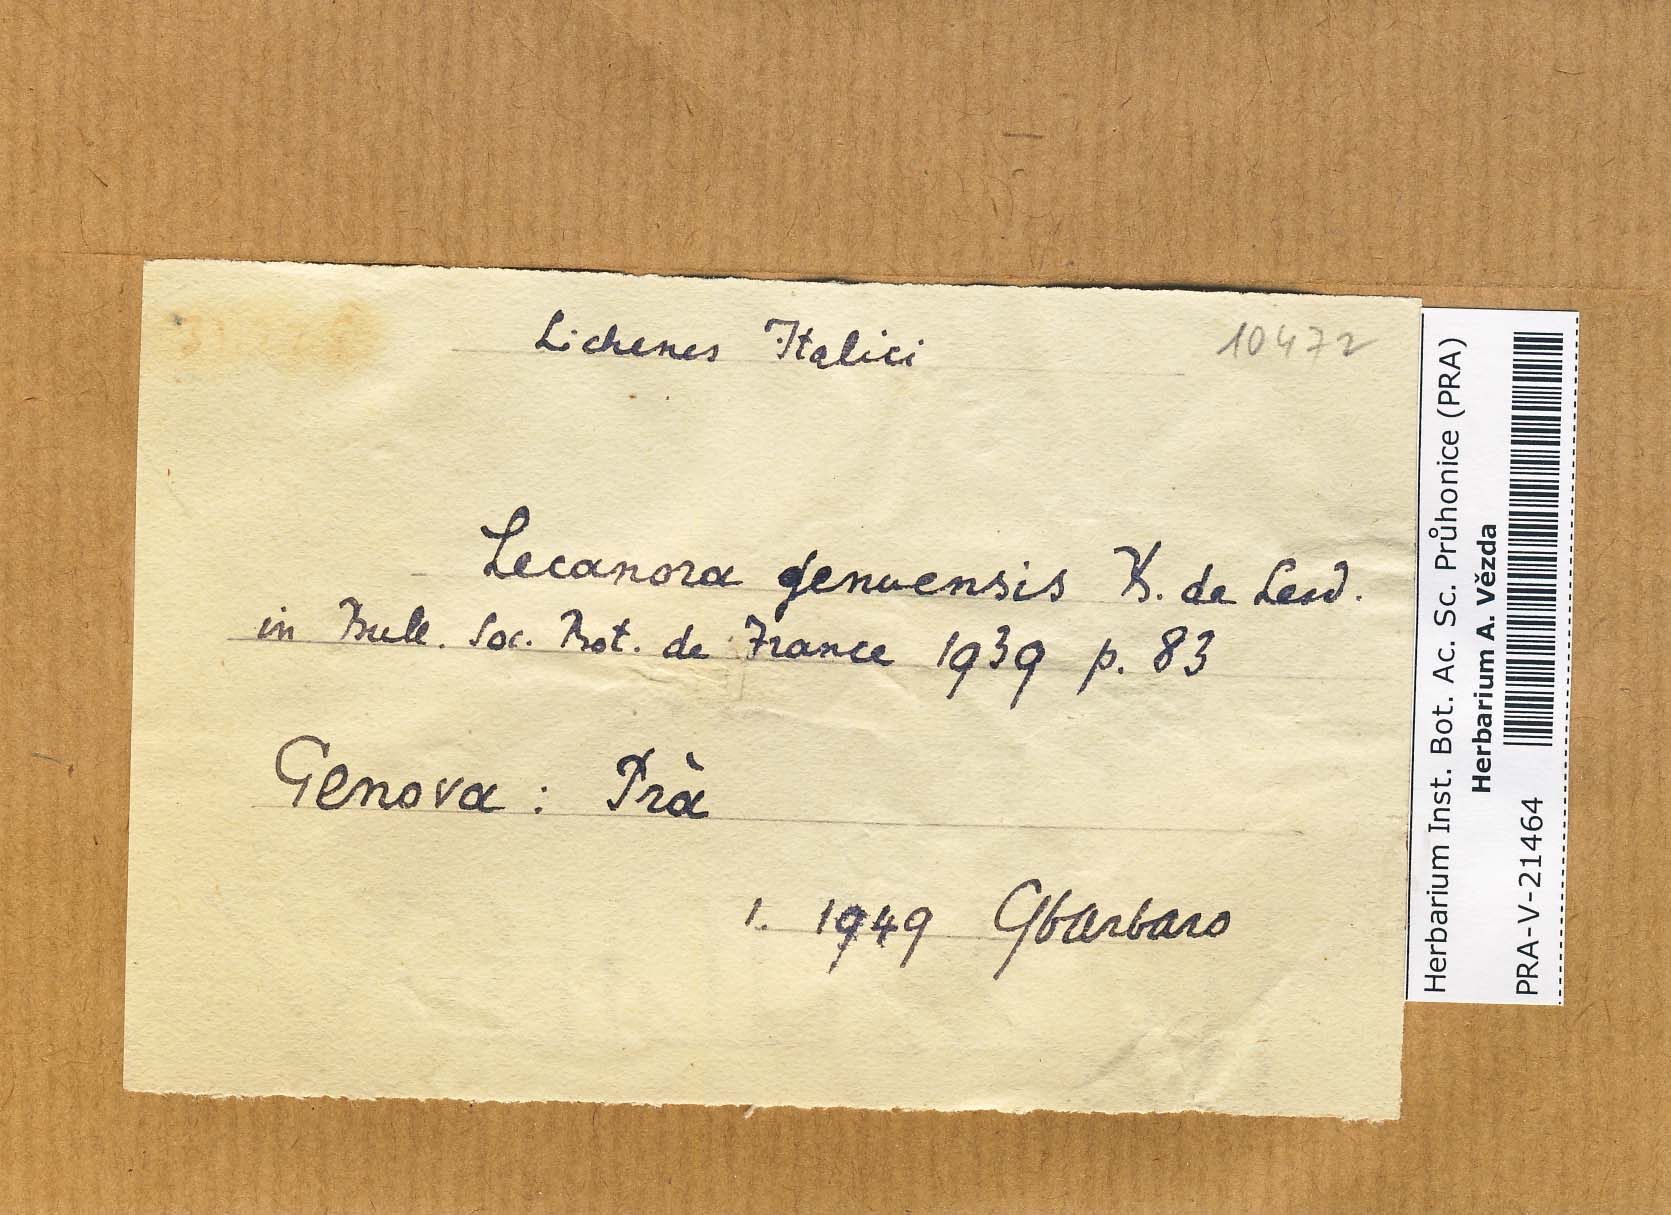 Lichenes Italici
10472
Lecanora genuensis B. de Lesd.
in Bull. Soc. Bot. de France 1939 p. 83
Genova : Prà
1. 1949 Gbarbaro
Herbarium Inst. Bot. Ac. Sc. Průhonice (PRA)
Herbarium A. Vězda
PRA-V-21464